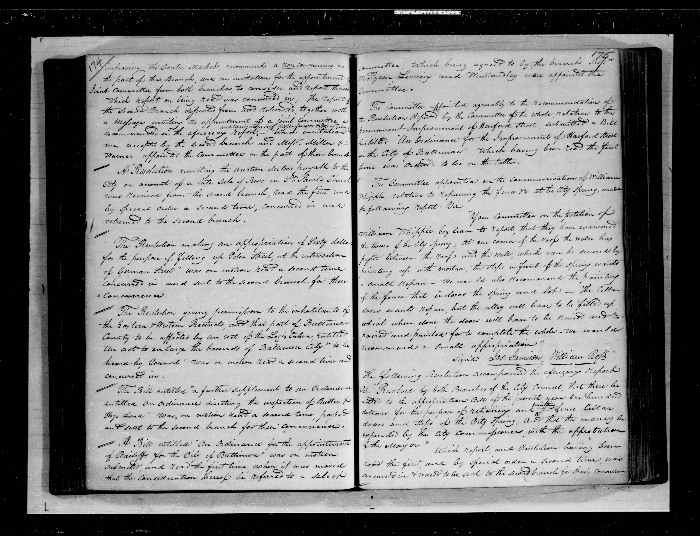 174
the part of this Branch, and an invitation for the appointment of a
Joint Committee from both branches to consider and report thereon
which report on being read was concurred in. The Report of
the Second Branch dissented from and returned, together with
a message inviting the appointment of a joint Committee
recommended in the aforegoing report which invitation
was accepted by the second branch and Messrs. Miller &
Warner appointed the Committee on the part of their branch
A Resolution remitting the auction duties payable to the
City on account of a late sale of Pews in St. Paul's Church
was received from the second branch, read the first and
by special order a second time, concurred in and
returned to the second branch.
The Resolution making an appropriation of Sixty dollars
for the purpose of filling up Eden Street, at the intersection
of German Street was on motion read a second time
concurred in and sent to the second branch for their
concurrence
The Resolution giving permission to the inhabitants of
the Eastern & Western Precincts and that part of Baltimore
County to be affected by an act of the Legislature, entitled
"An act to enlarge the bounds of Baltimore City" "to be
heard by Council" was on motion read a second time and
concurred in.
The Bill entitled "a further supplement to an Ordinance
entitled An Ordinance directing the inspection of Butter &
Hogs lard" was, on motion read a second time, passed
and sent to the second branch for their concurrence.
A Bill entitled "An Ordinance for the appointment
of Bailiffs for the City of Baltimore" was on motion
submitted and read the first time when it was moved
that the consideration thereof be referred to a select
175
committee which being agreed to by the branch
were appointed the
Committee.
The committee appointed agreeably to the recommendation of
a Resolution reported by the Committee of the whole relative to the
permanent Improvement of Harford Street submitted a Bill
entitled "An Ordinance for the Improvement of Harford Street
in the City of Baltimore" Which having been read the first
time was ordered to lie on the table.
The Committee appointed on the communication of William
Whipple relative to repairing the fence &c at the City Spring, made
the following report Viz
"Your Committee on the petition of
William Whipple beg leave to report, that they have examined
the house of the City Spring; at one corner of the roof the water has
passed between the roof and the wall, which can be secured by
pointing up with mortar, the steps in front of the spring wants
a small repair — We would also recommend the painting
of the fence that incloses the spring and house — The cellar
doors wants repair, but the alley will have to be filled up
which when done the doors will have to be raised and re-
paired and painted for to complete the whole We would
recommend a small appropriation"
Signed Jos. Jamison William Ross
The following Resolution accompanied the aforegoing Report
Viz "Resolved by both Branches of the City Council that there be
added to the appropriation Bill of the present year one hundred
dollars for the purpose of repairing and painting the fence Cellar
doors and steps of the City Spring, and that the money be
expended by the City Commissioners with the approbation
of the Mayor"
Which report and Resolution having been
read the first, and by special order a second time was
concurred in & ordered to be sent to the second branch for their concurrence